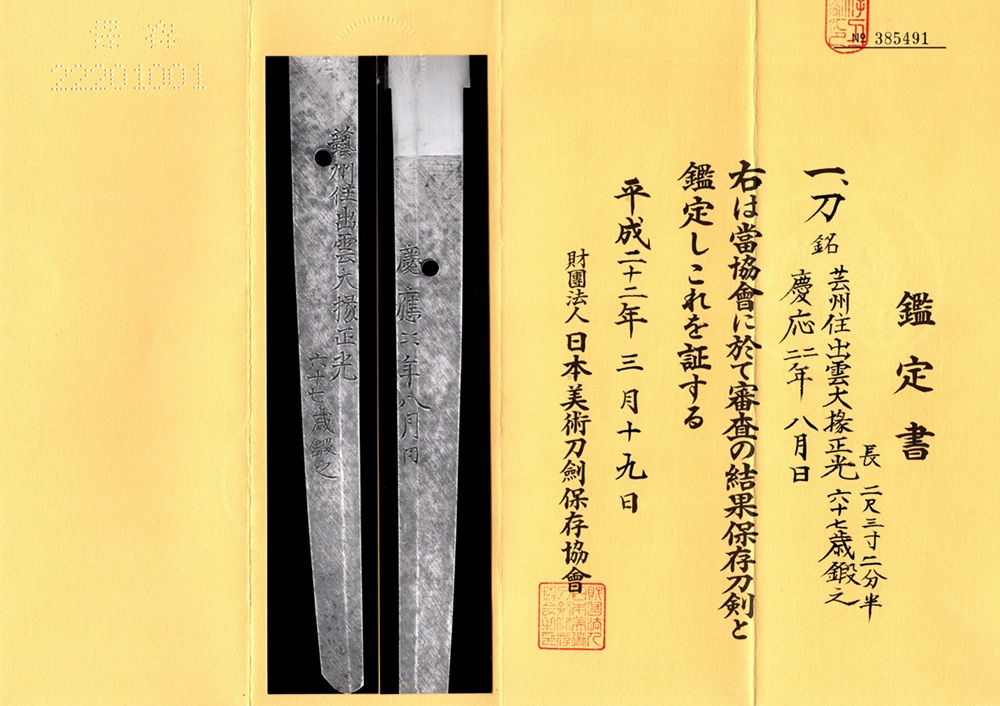 № 385491
鑑定書
一、刀 銘 芸州住出雲大掾正光 六十七歳鍛之
慶応二二年 八月日
長 二尺三寸二分半
右は當協會に於て審査の結果保存刀剣と
鑑定しこれを証する
平成二十二年 三月十九日
財團法人 日本美術刀劍保存協會
慶應二二年八月日
藝州住出雲大掾正光
六十七歳鍛之
保存
22201001